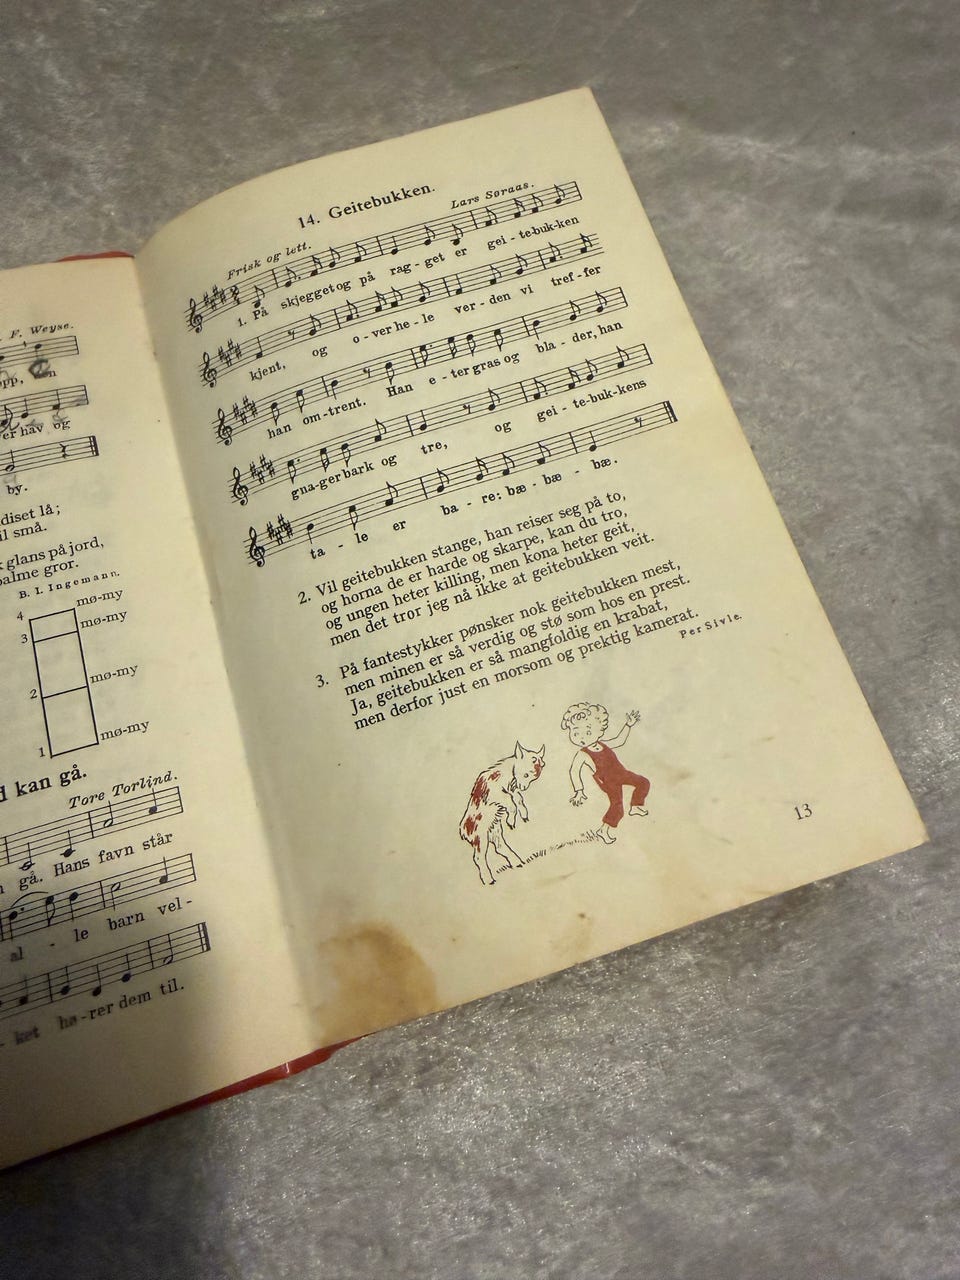 F. Weyse.
er hav og
by.
diset lå;
il små.
glans på jord,
palme gror.
B. I. Ingemann.
4 mø-my
3 mø-my
2 mø-my
1 mø-my
kan gå.
Tore Torlind.
gå. Hans favn står
al - le barn vel-
ket hø-rer dem til.
14. Geitebukken.
Lars Søraas.
Frisk og lett.
1. På skjegget og på rag-get er gei-te-buk-ken
kjent, og o-ver he-le ver-den vi tref-fer
han om-trent. Han e-ter gras og bla-der, han
gna-ger bark og tre, og gei-te-buk-kens
ta-le er ba-re: bæ-bæ-bæ.
2. Vil geitebukken stange, han reiser seg på to,
og horna de er harde og skarpe, kan du tro,
og ungen heter killing, men kona heter geit,
men det tror jeg nå ikke at geitebukken veit.
3. På fantestykker pønsker nok geitebukken mest,
men minen er så verdig og stø som hos en prest.
Ja, geitebukken er så mangfoldig en krabat,
men derfor just en morsom og prektig kamerat.
Per Sivle.
13